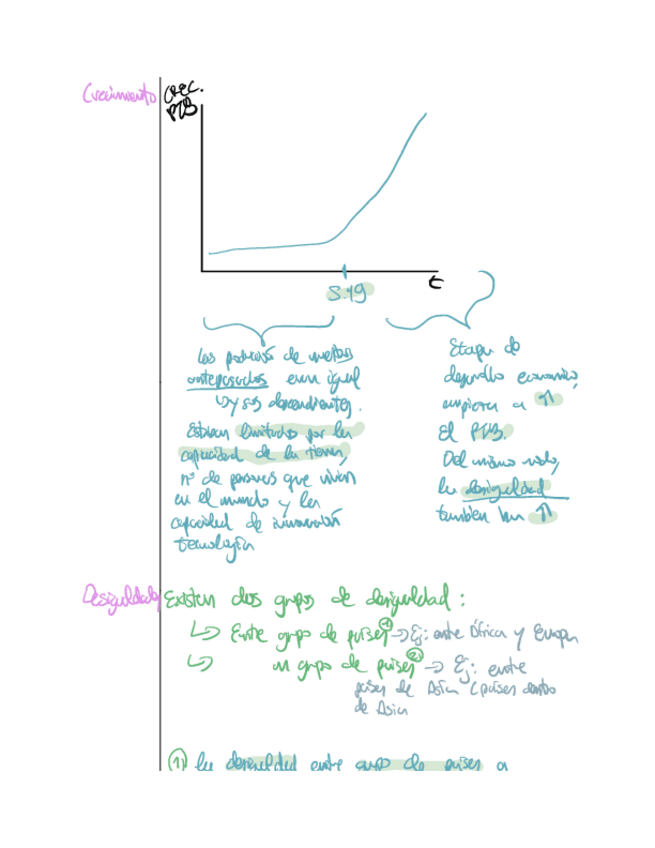 Crecimiento
Crec.
PIB
t
S.19
Los población de nuestros
antepasados eran igual
↳y sus descendientes.
Estaban limitados por la
capacidad de la tierra,
nº de personas que vivían
en el mundo y la
capacidad de innovación
tecnología
Etapa de
desarrollo económico,
empieza a ↑
el PIB.
Del mismo modo,
la desigualdad
también ha ↑
Desigualdad
Existen dos grupos de desigualdad:
↳ Entre grupo de países① → Ej: entre África y Europa
↳ un grupo de países② → Ej: entre
países de Asia (países dentro
de Asia
① la desigualdad entre grupo de países a